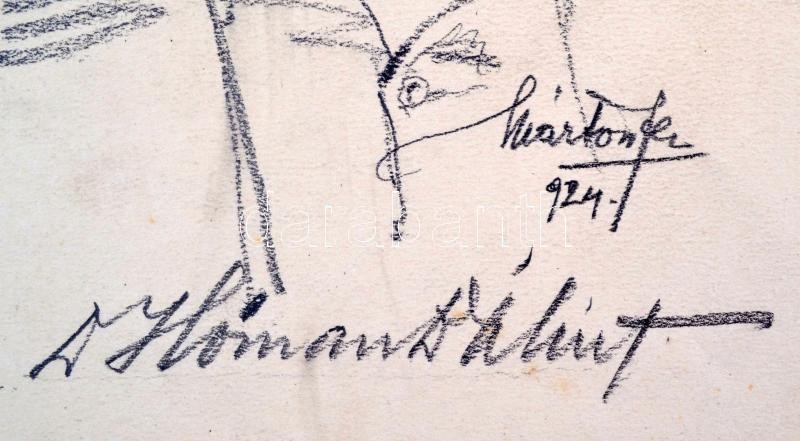 Márton Fer
924.
darabanth
Dr Hóman Bálint